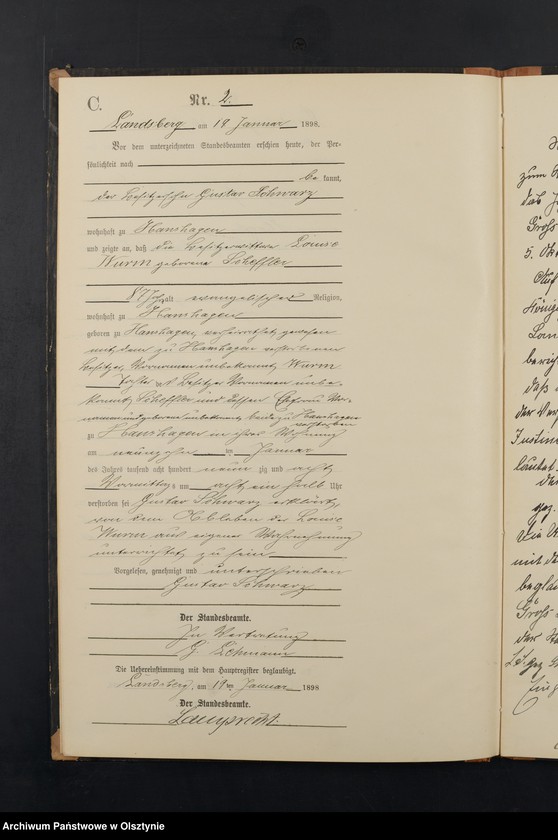 C.
Nr. 2.
Landsberg am 19 Januar 1898.
Vor dem unterzeichneten Standesbeamten erschien heute, der Per-
sönlichkeit nach
be kannt,
der Besitzersohn Gustav Schwarz
wohnhaft zu Hanshagen
und zeigte an, daß die Besitzerwittwe Louise
Wurm geborene Scheffler
87 Jahr alt evangelischer Religion,
wohnhaft zu Hanshagen
geboren zu Hanshagen, verheirathet gewesen
mit dem zu Hanshagen verstorbenen
Besitzer, Vornamen unbekannt, Wurm
Tochter des Besitzer Vornamen unbe-
kannt, Scheffler und dessen Ehefrau Vor-
namen und geborene unbekannt, beide zu Hanshagen
verstorben
zu Hanshagen in ihrer Wohnung
am neunzehn ten Januar
des Jahres tausend acht hundert neun zig und acht
Vormittags um acht ein halb Uhr
verstorben sei Gustav Schwarz erklärte,
von dem Ableben der Louise
Wurm aus eigener Wahrnehmung
unterrichtet zu sein
Vorgelesen, genehmigt und unterschrieben
Gustav Schwarz
Der Standesbeamte.
In Vertretung
G.
Die Uebereinstimmung mit dem Hauptregister beglaubigt.
Landsberg, am 19ten Januar 1898
Der Standesbeamte.
Lamprecht
Archiwum Państwowe w Olsztynie